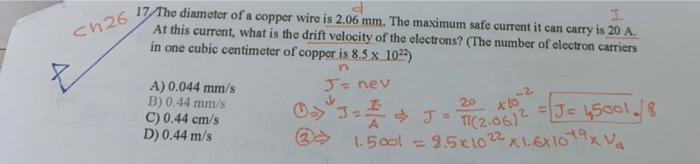 ch26
d
I
17. The diameter of a copper wire is 2.06 mm. The maximum safe current it can carry is 20 A.
At this current, what is the drift velocity of the electrons? (The number of electron carriers
in one cubic centimeter of copper is 8.5 x 10²²)
n
A) 0.044 mm/s
B) 0.44 mm/s
C) 0.44 cm/s
D) 0.44 m/s
J = nev
① ⇒ J = I/A ⇒ J = 20/π(2.06)² x10⁻² =
② ⇒ 1.5001 = 8.5x10²² x 1.6x10⁻¹⁹ x Vd